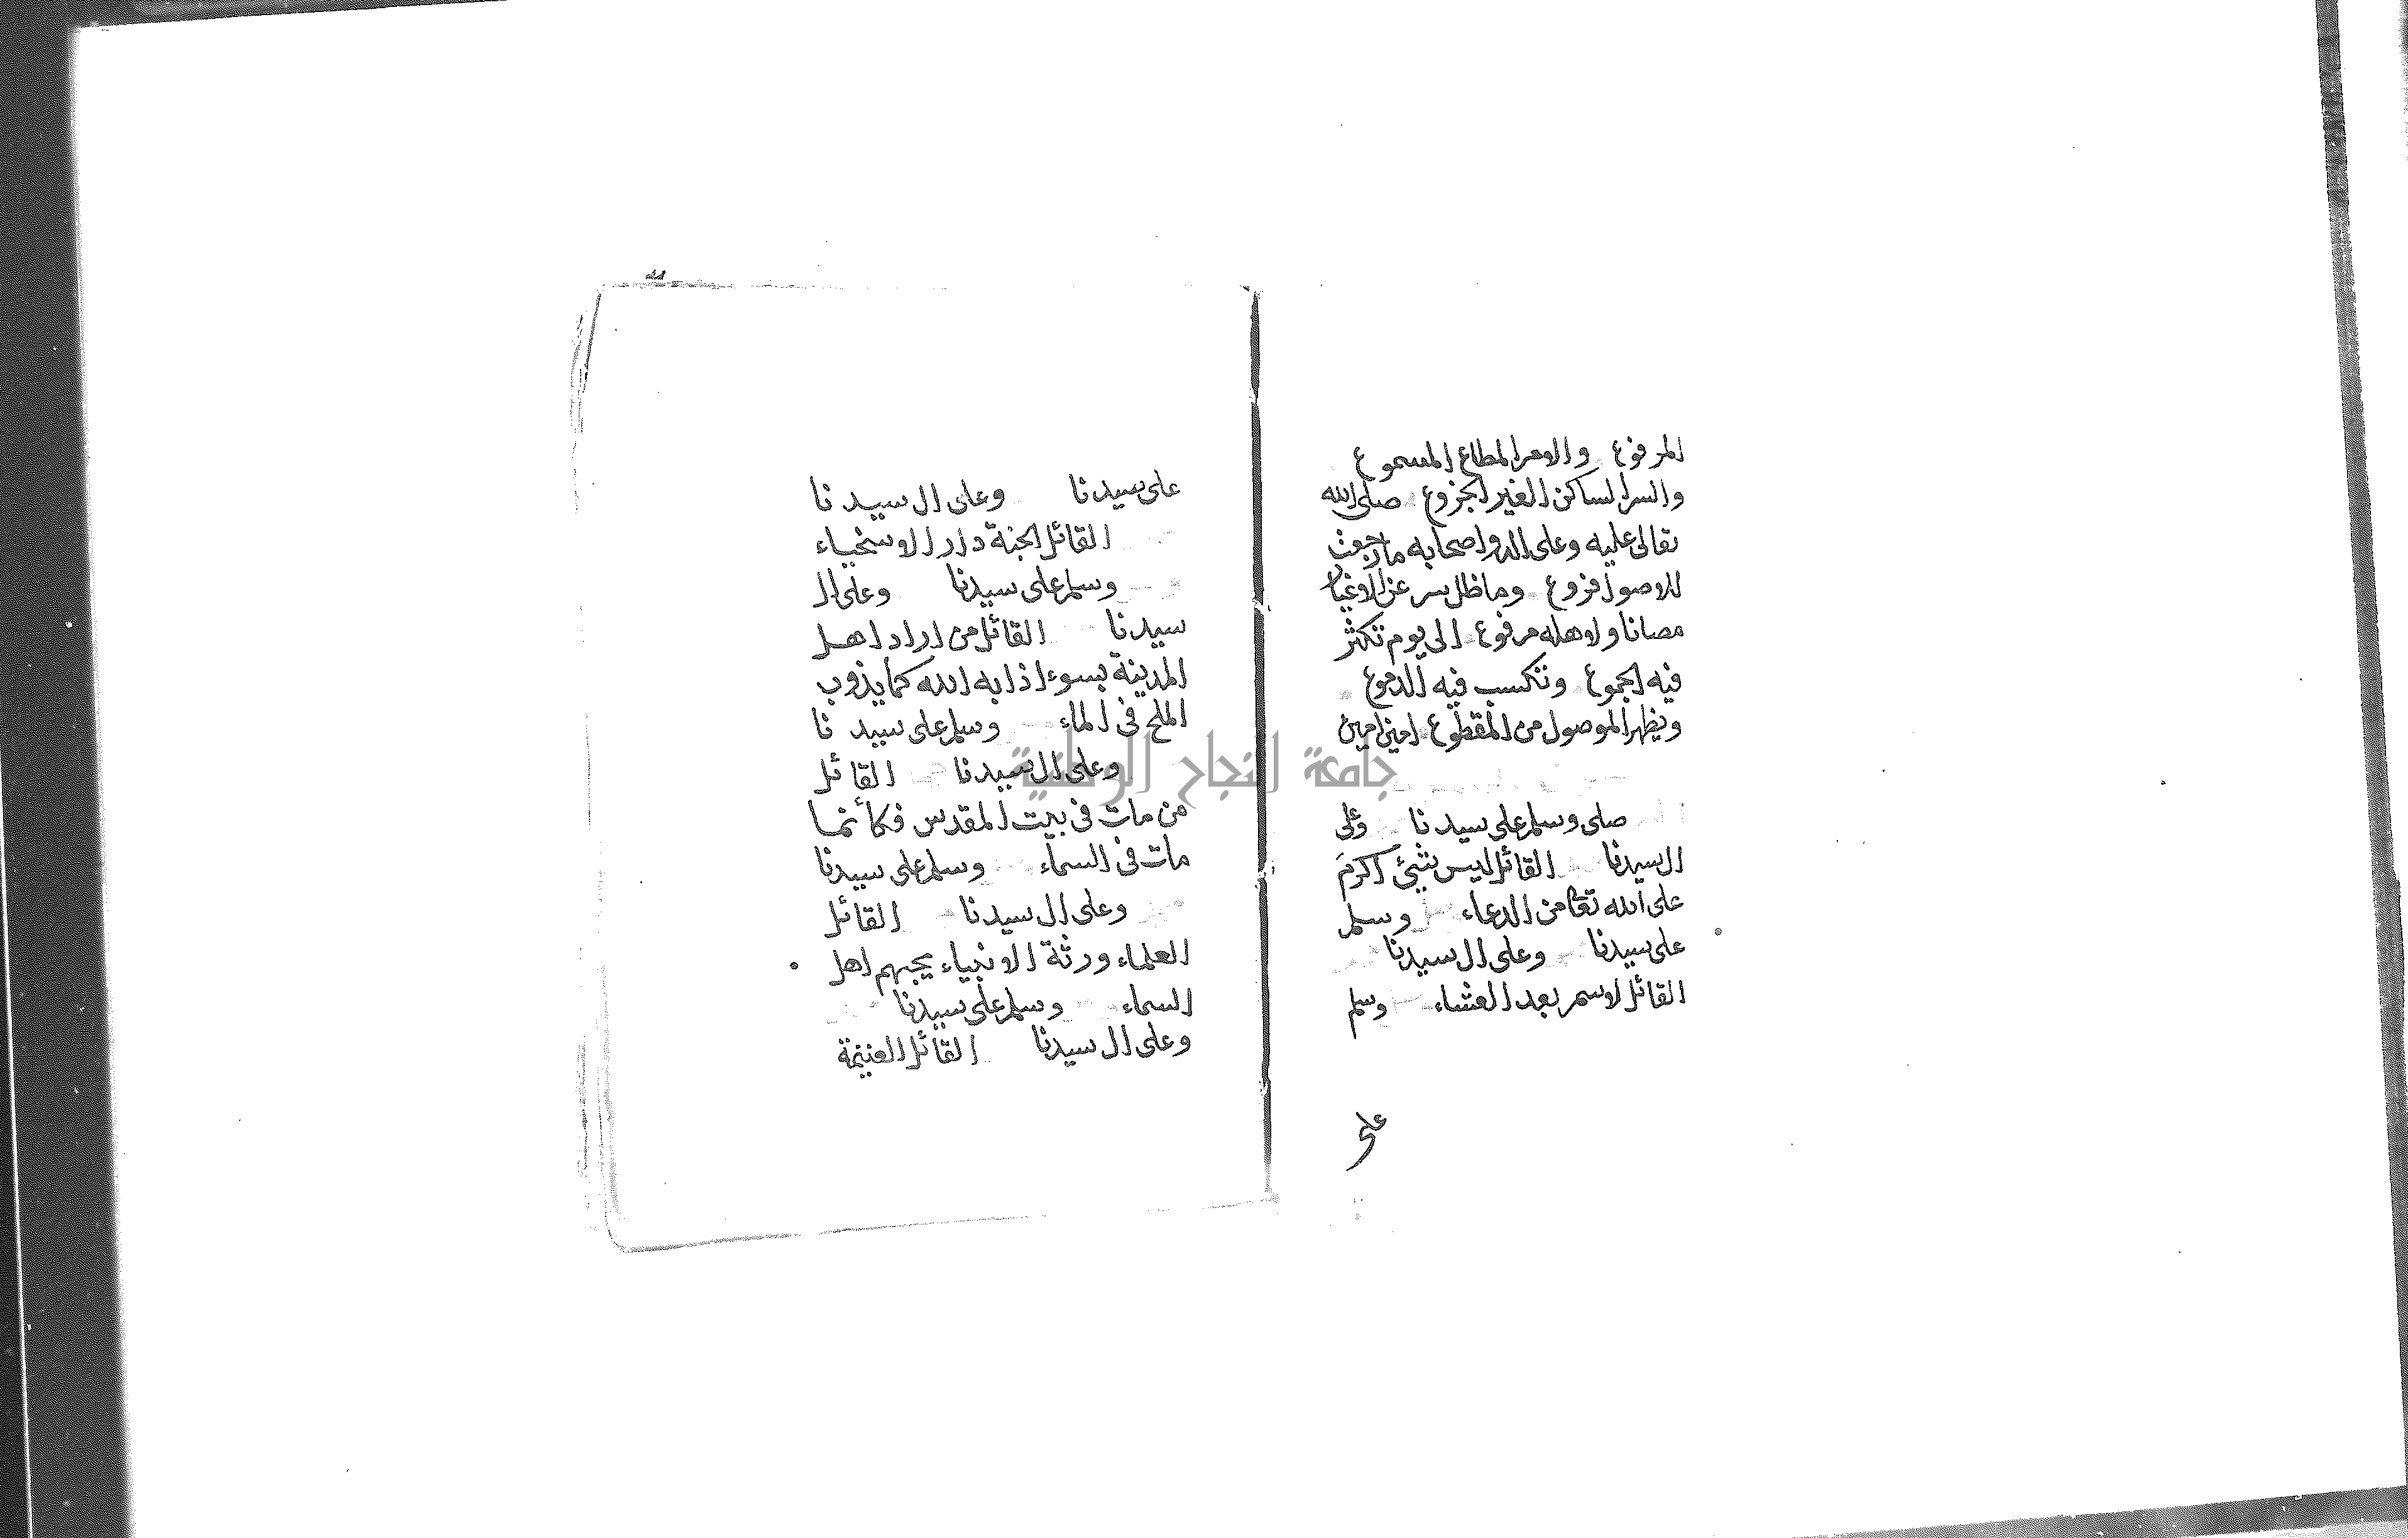 المرفوع والامر المطاع المسموع
والسر الساكن الغير الجزوع صلى الله
تعالى عليه وعلى اله واصحابه ما رجعت
للاصول فروع وما ظل سر عن الاغيار
مصانا ولاهله مرفوع الى يوم تكثر
فيه الجموع وتنكسب فيه الدموع
ويظهر الموصول من المقطوع امين امين
صلى وسلم على سيدنا وعلى
ال سيدنا القائل ليس شيئ اكرم
على الله تعا من الدعاء وسلم
على سيدنا وعلى ال سيدنا
القائل لا سمر بعد العشاء وسلم
على
على سيدنا وعلى ال سيدنا
القائل الجنة دار الاسخياء
وسلم على سيدنا وعلى ال
سيدنا القائل من اراد اهل
المدينة بسوء اذابه الله كما يذوب
الملح فى الماء وسلم على سيدنا
وعلى ال سيدنا القائل
من مات فى بيت المقدس فكأنما
مات فى السماء وسلم على سيدنا
وعلى ال سيدنا القائل
العلماء ورثة الانبياء يحبهم اهل
السماء وسلم على سيدنا
وعلى ال سيدنا القائل الغنيمة
جامعة النجاح الوطنية